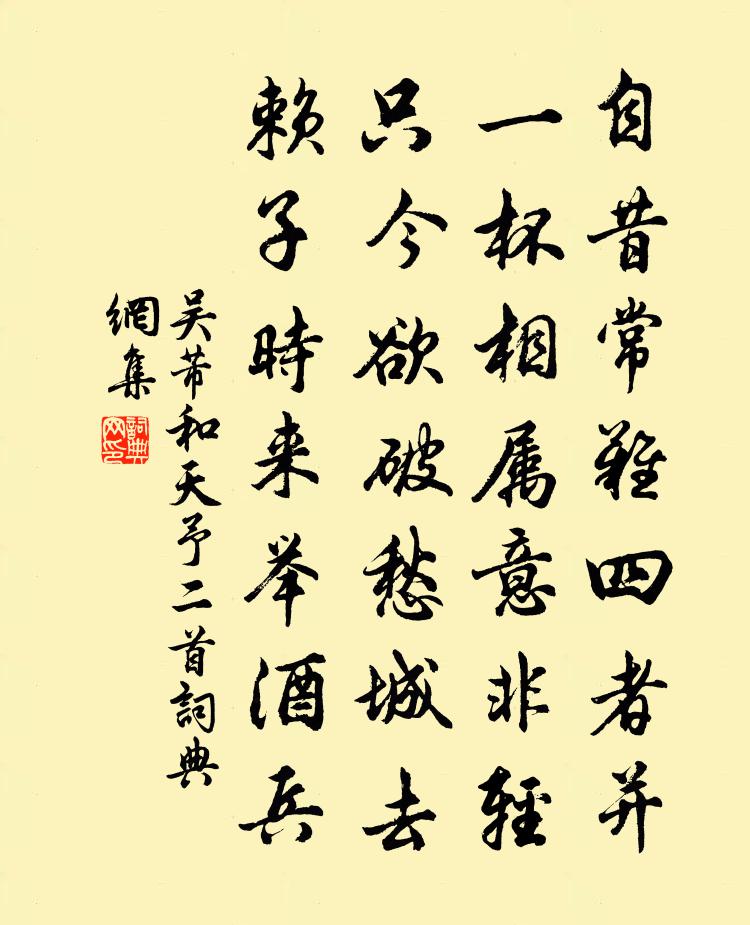 自昔常難四者并
一杯相属意非輕
只今欲破愁城去
赖子時来举酒兵
吴芾和天予二首詞典
網集
詞典
网印